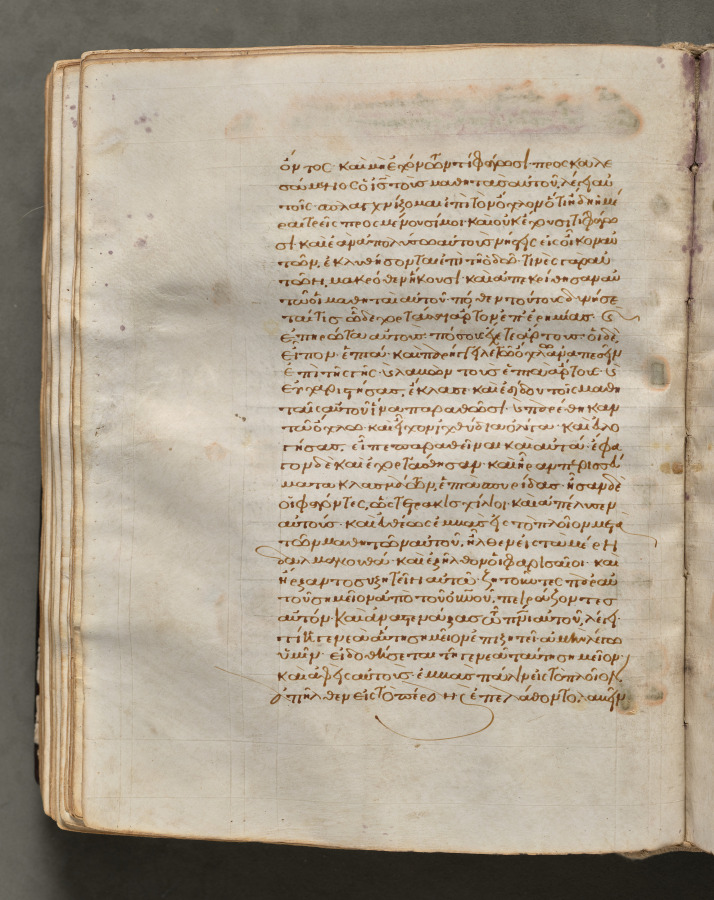 ὄντος· καὶ μὴ ἐχόντων τί φάγωσι· προσκαλε
σάμενος ὁ ις τοὺς μαθητὰς αὐτοῦ, λέγει αὐ
τοῖς· σπλαγχνίζομαι ἐπὶ τὸν ὄχλον ὅτι ἤδη ἡμέ
ραι τρεῖς προσμένουσί μοι καὶ οὐκ ἔχουσι τί φάγω
σι· καὶ ἐὰν ἀπολύσω αὐτοὺς νήστεις εἰς οἶκον αὐ
τῶν, ἐκλυθήσονται ἐν τῇ ὁδῶ· τινὲς γὰρ αὐ
τῶν, μακρόθεν ἥκουσι· καὶ ἀπεκρίθησαν αὐ
τῶ οἱ μαθηταὶ αὐτοῦ· πόθεν τούτους δυνήσε
ταί τις ὧδε χορτάσαι ἄρτον ἐπ' ἐρημίας· καὶ
ἐπηρώτα αὐτούς· πόσους ἔχετε ἄρτους· οἱ δὲ
εἶπον· ἑπτά· καὶ παρήγγειλε τῶ ὄχλω ἀναπεσεῖν
ἐπὶ τῆς γῆς· καὶ λαβὼν τοὺς ἑπτὰ ἄρτους· καὶ
εὐχαριστήσας, ἔκλασε καὶ ἐδίδου τοῖς μαθη
ταῖς αὐτοῦ ἵνα παραθῶσι· καὶ παρέθηκαν
τῶ ὄχλω· καὶ εἶχον ἰχθύδια ὀλίγα· καὶ εὐλο
γήσας, εἶπε παραθεῖναι καὶ αὐτά· ἔφα
γον δὲ καὶ ἐχορτάσθησαν· καὶ ἦραν περισσεύ
ματα κλασμάτων, ἑπτὰ σπυρίδας· ἦσαν δὲ
οἱ φαγόντες, ὡς τετρακισχίλιοι· καὶ ἀπέλυσεν
αὐτούς· καὶ εὐθέως ἐμβὰς εἰς τὸ πλοῖον μετὰ
τῶν μαθητῶν αὐτοῦ, ἦλθεν εἰς τὰ μέρη
δαλμανουθά· καὶ ἐξῆλθον οἱ φαρισαῖοι· καὶ
ἤρξαντο συζητεῖν αὐτῶ· ζητοῦντες παρ' αὐ
τοῦ σημεῖον ἀπὸ τοῦ οὐνοῦ, πειράζοντες
αὐτόν· καὶ ἀναστενάξας τῶ πνι αὐτοῦ, λέγει·
τί ἡ γενεὰ αὕτη σημεῖον ἐπιζητεῖ· ἀμὴν λέγω
ὑμῖν· εἰ δοθήσεται τῇ γενεᾷ ταύτῃ σημεῖον·
καὶ ἀφεὶς αὐτούς· ἐμβὰς πάλιν εἰς τὸ πλοῖον,
ἀπῆλθεν εἰς τὸ πέραν· καὶ ἐπελάθοντο λαβεῖν